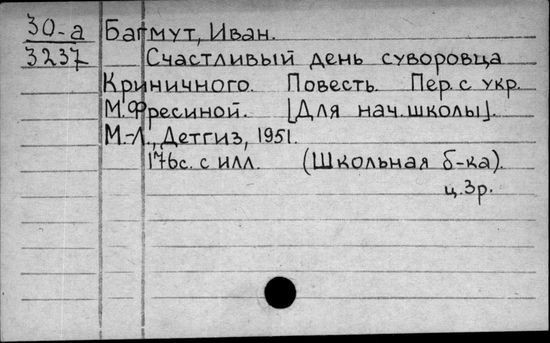 30-а Багмут, Иван.
3237 Счастливый день суворовца
Криничного. Повесть. Пер. с укр.
М. Фресиной. [Для нач. школы].
М.-Л., Детгиз, 1951.
176с. с илл. (Школьная б-ка).
ц. 3р.